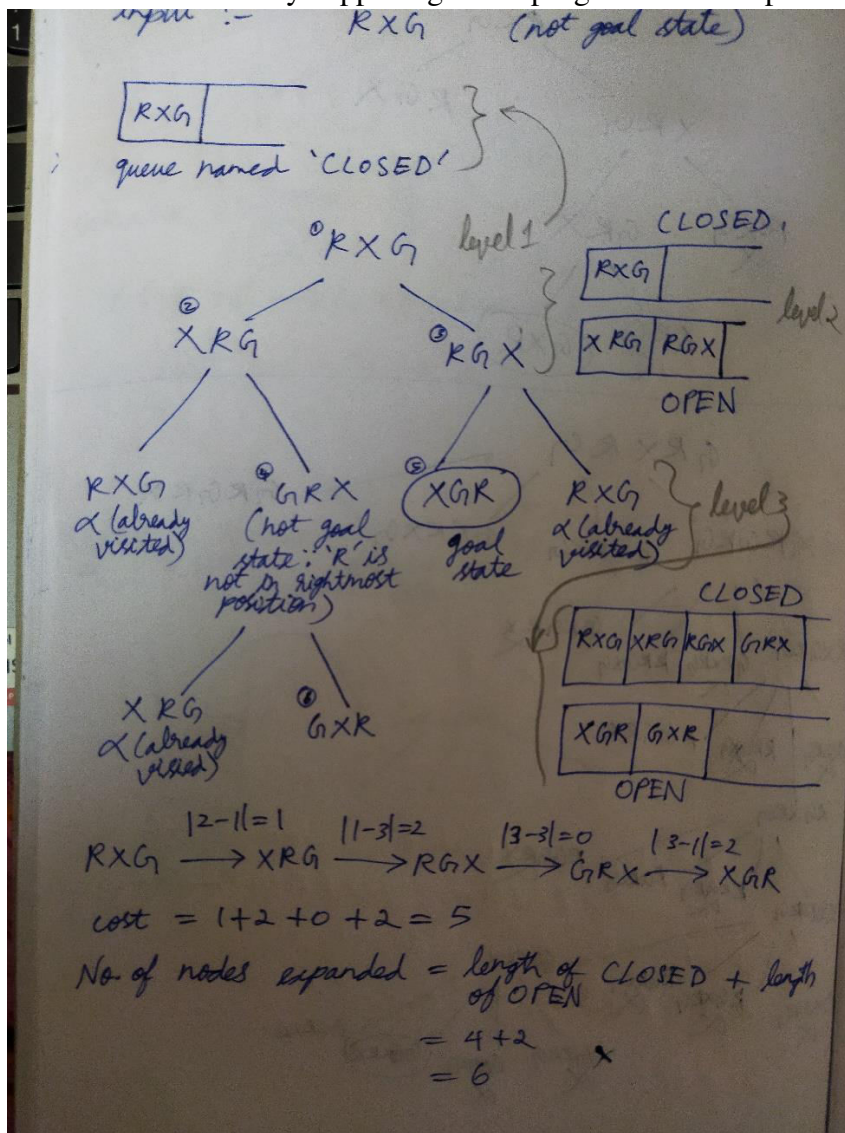 input :- RXG (not goal state)
RXG
queue named 'CLOSED'
level 1
① RXG
CLOSED.
RXG
level 2
② XRG
③ RGX
XRG RGX
OPEN
RXG
∝ (already visited)
④ GRX
(not goal
state ∵ 'R' is
not in rightmost
position)
⑤ XGR
goal
state
RXG
∝ (already
visited)
level 3
CLOSED
RXG XRG RGX GRX
XRG
∝ (already
visited)
⑥ GXR
XGR GXR
OPEN
|2-1|=1 |1-3|=2 |3-3|=0 |3-1|=2
RXG → XRG → RGX → GRX → XGR
cost = 1+2+0+2 = 5
No. of nodes expanded = length of CLOSED + length
of OPEN
= 4+2
= 6